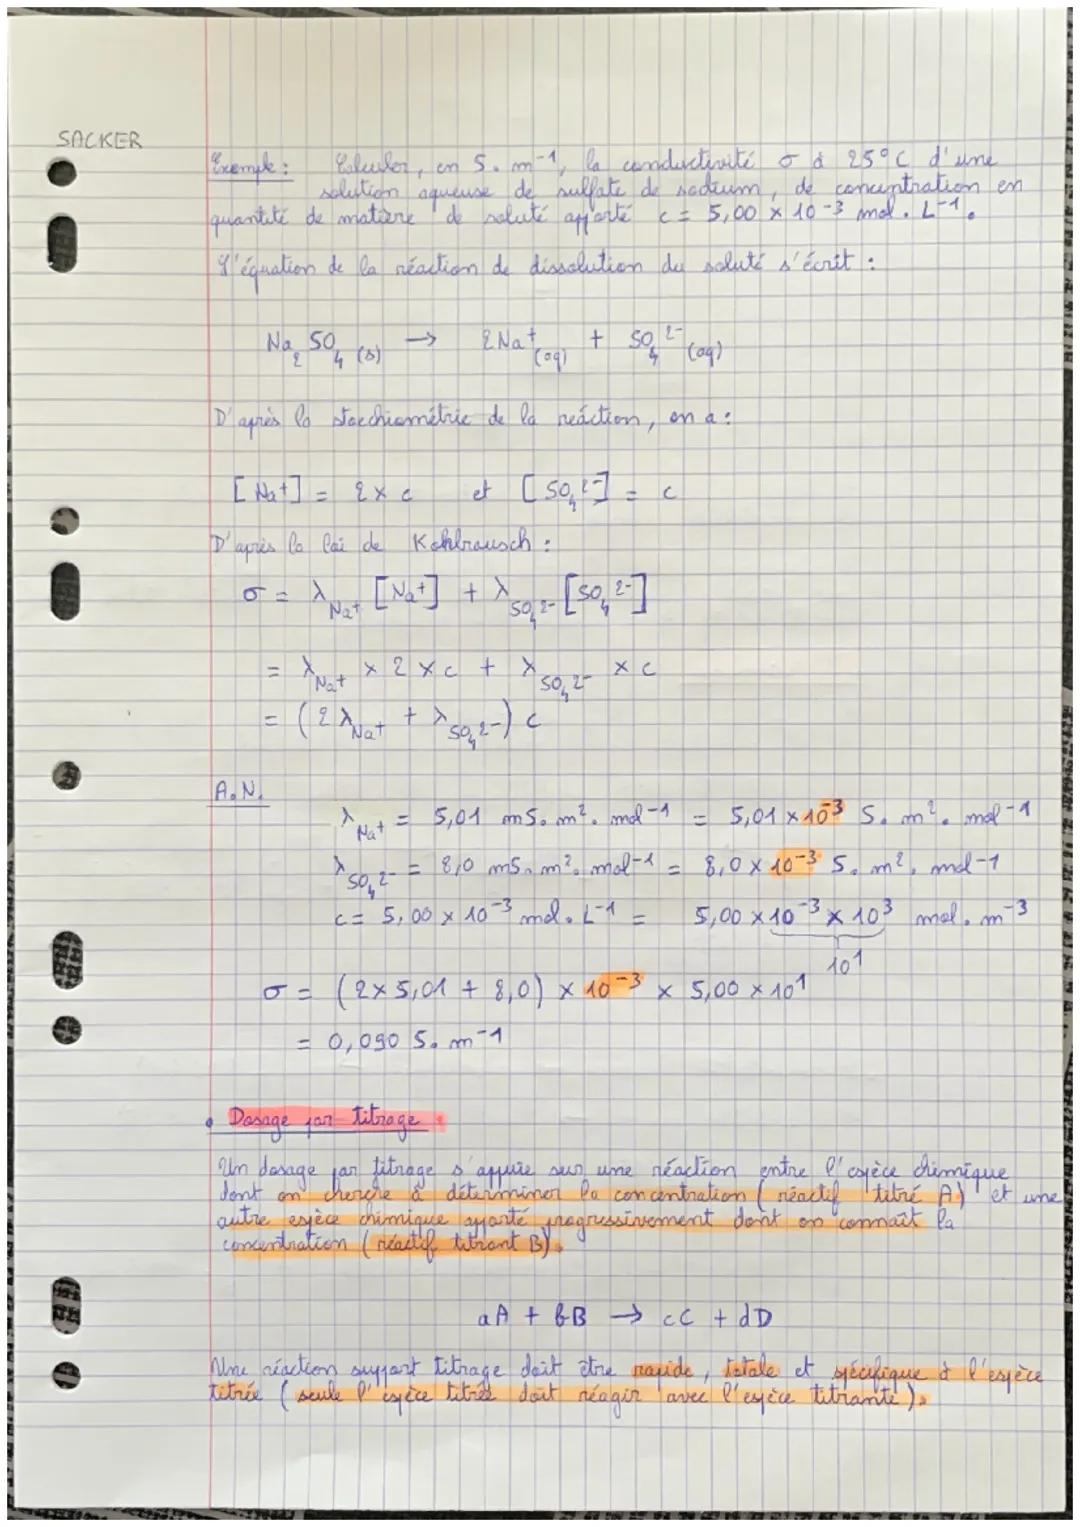 SACKER
Exemple : Calculer, en S. m-1, la conductivité σ à 25°C d'une
solution aqueuse de sulfate de sodium, de concentration en
quantité de matière de soluté apporté c = 5,00 × 10-3 mol. L-1.
L'équation de la réaction de dissolution du soluté s'écrit :
Na2SO4 (s) → 2Na+(aq) + SO4 2-(aq)
D'après la stoechiométrie de la réaction, on a :
[Na+] = 2 × c et [SO4 2-] = c
D'après la loi de Kohlrausch :
σ = λNa+ [Na+] + λSO4 2- [SO4 2-]
= λNa+ × 2 × c + λSO4 2- × c
= (2λNa+ + λSO4 2-) c
A.N.
λNa+ = 5,01 mS. m². mol-1 = 5,01 × 10-3 S. m². mol-1
λSO4 2- = 8,0 mS. m². mol-1 = 8,0 × 10-3 S. m². mol-1
c = 5,00 × 10-3 mol. L-1 = 5,00 × 10-3 × 10³ mol. m-3
10¹
σ = (2 × 5,01 + 8,0) × 10-3 × 5,00 × 10¹
= 0,090 S. m-1
• Dosage par titrage :
Un dosage par titrage s'appuie sur une réaction entre l'espèce chimique
dont on cherche à déterminer la concentration (réactif titré A) et une
autre espèce chimique apporté progressivement dont on connaît la
concentration (réactif titrant B).
aA + bB → cC + dD
Une réaction support titrage doit être rapide, totale et spécifique à l'espèce
titrée (seule l'espèce titrée doit réagir avec l'espèce titrante).